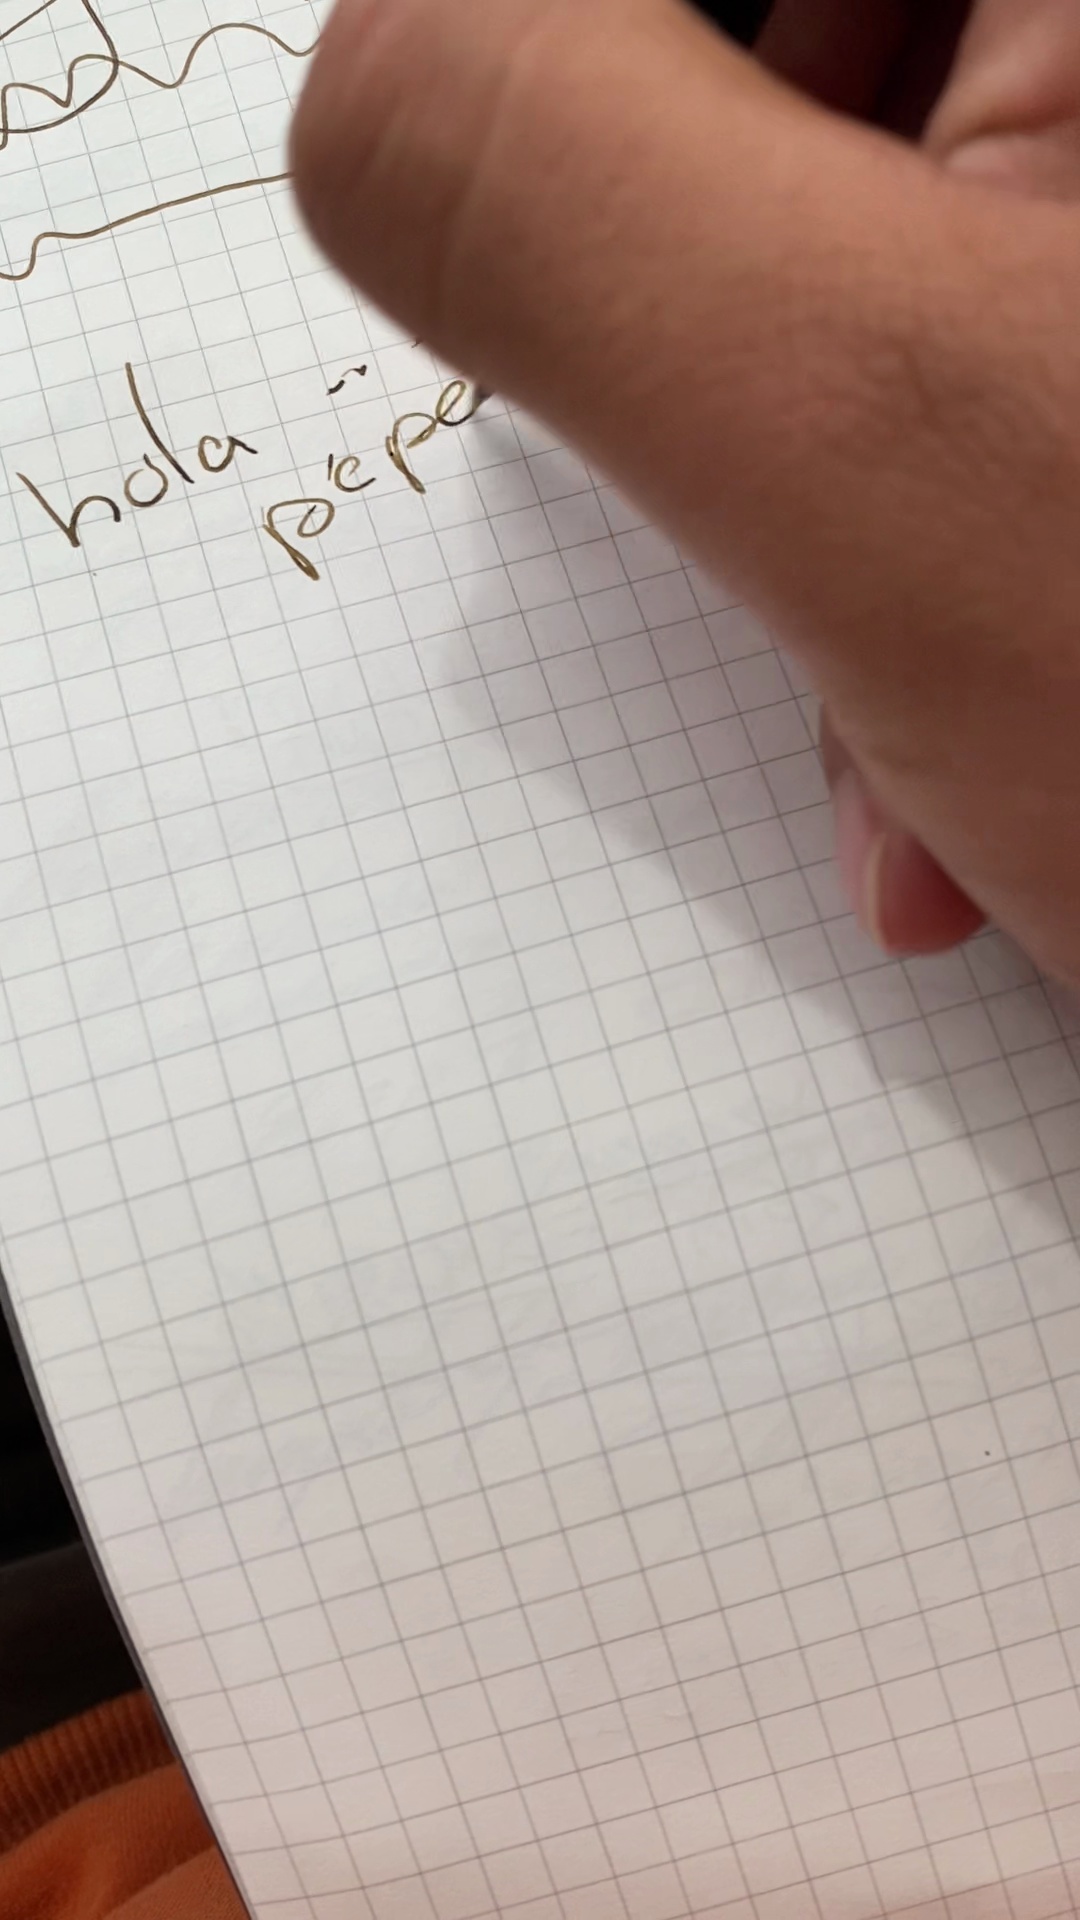 hola pepe